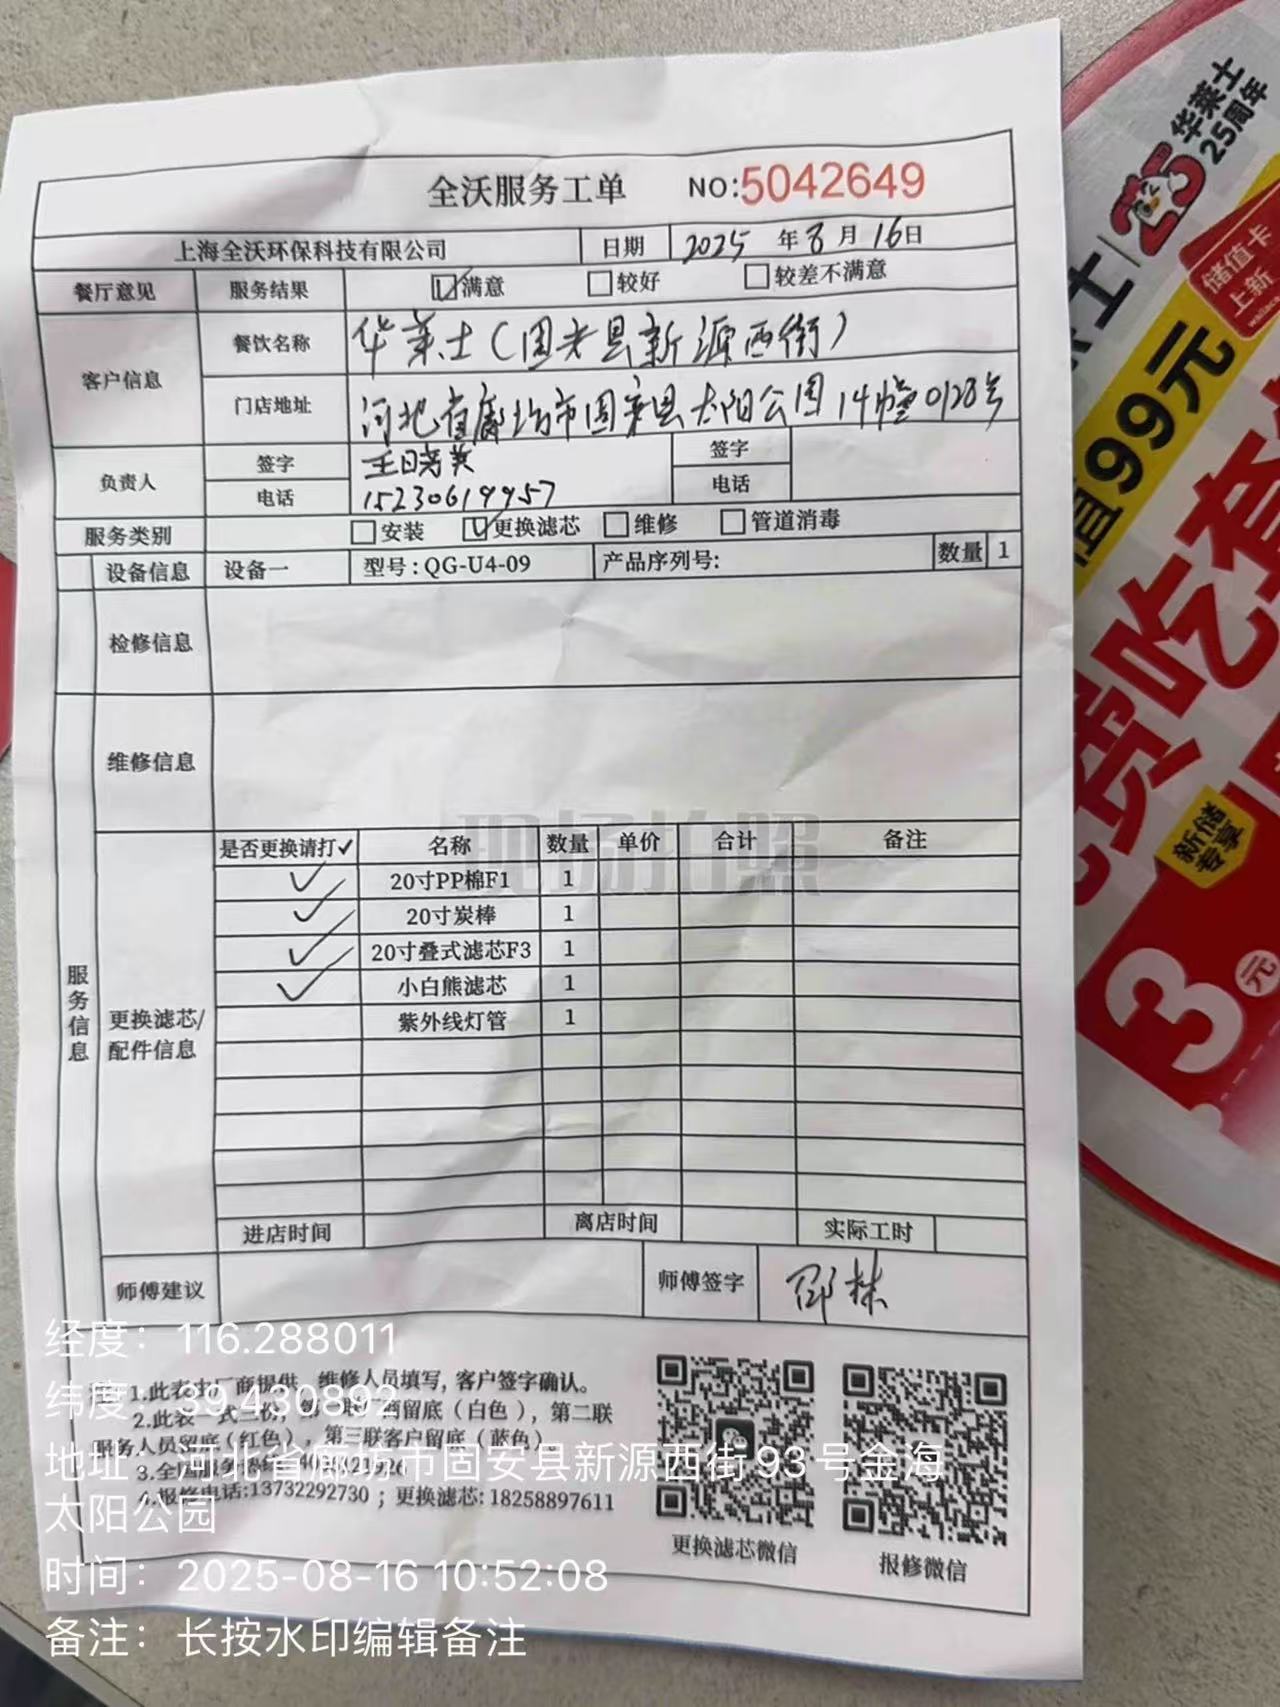 全沃服务工单 NO:5042649
上海全沃环保科技有限公司 日期 2025 年 8 月 16日
餐厅意见 服务结果 ☑满意 □较好 □较差不满意
客户信息 餐饮名称 华莱士(固安县新源西街)
门店地址 河北省廊坊市固安县太阳公园14幢0128号
负责人 签字 签字
电话 15230619957 电话
服务类别 □安装 ☑更换滤芯 □维修 □管道消毒
设备信息 设备一 型号:QG-U4-09 产品序列号: 数量 1
检修信息
维修信息
服务信息
更换滤芯/配件信息
是否更换请打✓ 名称 数量 单价 合计 备注
✓ 20寸PP棉F1 1
✓ 20寸炭棒 1
✓ 20寸叠式滤芯F3 1
✓ 小白熊滤芯 1
紫外线灯管 1
进店时间 离店时间 实际工时
师傅建议 师傅签字 邵林
1.此表由厂商提供,维修人员填写,客户签字确认。
2.此表一式三份,第一联厂商留底(白色),第二联
服务人员留底(红色),第三联客户留底(蓝色)。
3.全国服务
4.报修电话:13732292730;更换滤芯:18258897611
更换滤芯微信
报修微信
现场拍照
经度:116.288011
纬度:39.430892
地址:河北省廊坊市固安县新源西街93号金海
太阳公园
时间:2025-08-16 10:52:08
备注:长按水印编辑备注
华莱士
25周年
储值卡
上新
值99元
新储
专享
3元